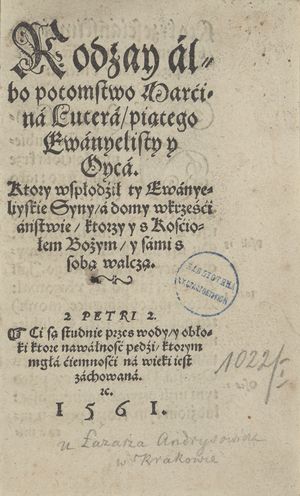 Rodzay ál-
bo potomstwo Marci-
ná Lucerá / piątego
Ewányelisty y
Oycá.
Ktory wspłodził ty Ewánye-
liyskie Syny / á domy wkrześci-
áństwie / ktorzy y s Kościo-
łem Bożym / y sámi s
sobą walczą.
2 PETRI 2.
Ci są studnie przes wody / y obło-
ki ktore nawáłność pędzi / ktorym
mgłá ćiemnośći ná wieki iest
záchowaná.
ꝛc.
1561.
1022/I
u Łazarza Andrysowicza
w Krakowie